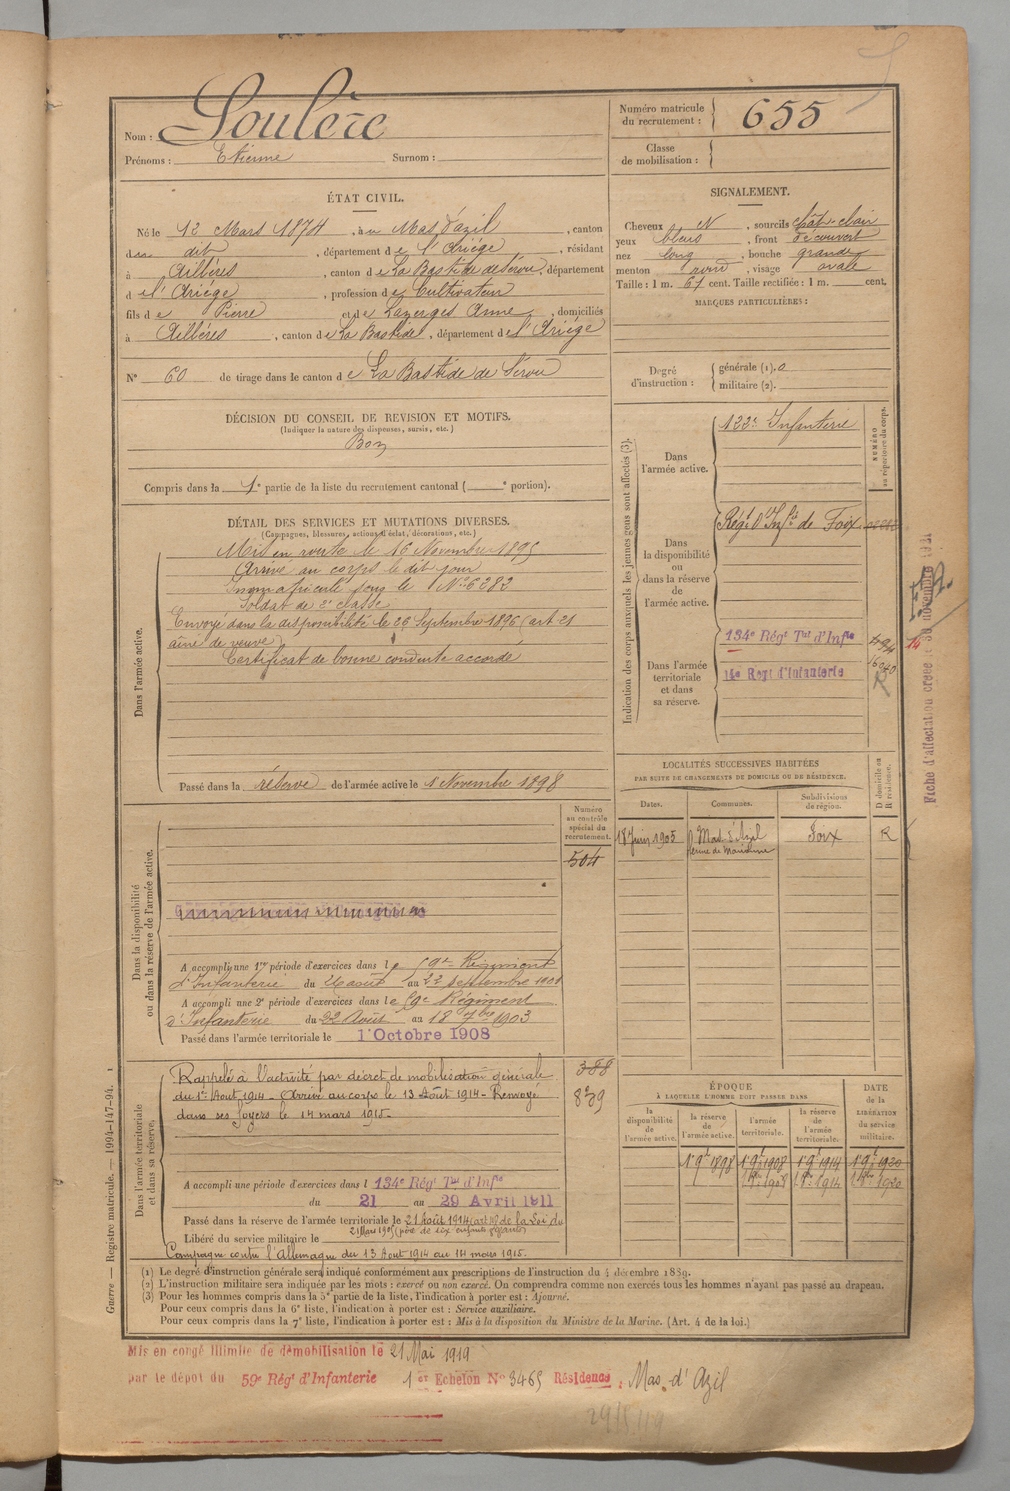 Nom : Soulère
Prénoms : Etienne Surnom :
Numéro matricule du recrutement : 655
Classe de mobilisation :
ÉTAT CIVIL.
Né le 12 Mars 1874, à u Mas d'azil, canton
du dit, département de l'Ariège, résidant
à Aillères, canton de La Bastide de Sérou, département
d e l'Ariège, profession de Cultivateur
fils de Pierre et de Lazerges Anne, domiciliés
à Aillères, canton de La Bastide, département de l'Ariège
N° 60 de tirage dans le canton de La Bastide de Sérou
SIGNALEMENT.
Cheveux N, sourcils chât-clair
yeux bleus, front découvert
nez long, bouche grande
menton rond, visage ovale
Taille : 1 m. 67 cent. Taille rectifiée : 1 m. cent.
MARQUES PARTICULIÈRES :
Degré d'instruction : générale (1). 0
militaire (2).
DÉCISION DU CONSEIL DE REVISION ET MOTIFS.
(Indiquer la nature des dispenses, sursis, etc.)
Bon
Compris dans la 1e partie de la liste du recrutement cantonal ( e portion).
DÉTAIL DES SERVICES ET MUTATIONS DIVERSES.
(Campagnes, blessures, actions d'éclat, décorations, etc.)
Dans l'armée active.
Mis en route le 16 Novembre 1895
Arrivé au corps le dit jour
Immatriculé sous le N° 6282
Soldat de 2e classe
Envoyé dans la disponibilité le 29 Septembre 1896 (art 21
aîné de veuve)
Certificat de bonne conduite accordé
Passé dans la réserve de l'armée active le 1 Novembre 1898
Indication des corps auxquels les jeunes gens sont affectés (3).
NUMÉRO au répertoire du corps.
Dans l'armée active.
122e Infanterie
Dans la disponibilité ou dans la réserve de l'armée active.
Régt d'Infie de Foix
Dans l'armée territoriale et dans sa réserve.
134e Régt Tal d'Infie
14e Regt d'Infanterie
R
14
Fiche d'affectation créée le 30 novembre 1921
LOCALITÉS SUCCESSIVES HABITÉES
PAR SUITE DE CHANGEMENTS DE DOMICILE OU DE RÉSIDENCE.
Dates. Communes. Subdivisions de région. D domicile ou R résidence.
18 Juin 1905 Mas d'Azil Foix R
Numéro au contrôle spécial du recrutement.
504
Dans la disponibilité ou dans la réserve de l'armée active.
A accompli une 1re période d'exercices dans le 59e Régiment
d'Infanterie du 26 août au 22 Septembre 1901
A accompli une 2e période d'exercices dans le 59e Régiment
d'Infanterie du 22 Août au 18 7bre 1903
Passé dans l'armée territoriale le 1er Octobre 1908
388
839
Dans l'armée territoriale et dans sa réserve,
Rappelé à l'activité par décret de mobilisation générale
du 1er Août 1914 - Arrivé au corps le 13 Août 1914 - Renvoyé
dans ses foyers le 14 mars 1915 -
A accompli une période d'exercices dans l 134e Régt Tal d'Infie
du 21 au 29 Avril 1911
Passé dans la réserve de l'armée territoriale le 21 Août 1914 (art 48 de la Loi du
21 Mars 1905 (père de six enfants vivants)
Libéré du service militaire le
Campagne contre l'Allemagne du 13 Août 1914 au 14 mars 1915.
ÉPOQUE
À LAQUELLE L'HOMME DOIT PASSER DANS
DATE de la LIBÉRATION du service militaire.
la disponibilité de l'armée active. la réserve de l'armée active. l'armée territoriale. la réserve de l'armée territoriale.
1 9bre 1898 1 9bre 1908 1 9bre 1914 1 9bre 1920
1 8bre 1908 1 8bre 1914 1 8bre 1920
(1) Le degré d'instruction générale sera indiqué conformément aux prescriptions de l'instruction du 4 décembre 1889.
(2) L'instruction militaire sera indiquée par les mots : exercé ou non exercé. On comprendra comme non exercés tous les hommes n'ayant pas passé au drapeau.
(3) Pour les hommes compris dans la 5e partie de la liste, l'indication à porter est : Ajourné.
Pour ceux compris dans la 6e liste, l'indication à porter est : Service auxiliaire.
Pour ceux compris dans la 7e liste, l'indication à porter est : Mis à la disposition du Ministre de la Marine. (Art. 4 de la loi.)
Guerre — Registre matricule. — 1994-147-94. 1
Mis en congé illimité de démobilisation le 21 Mai 1919
par le dépôt du 59e Régt d'Infanterie 1er Echelon N° 3465 Résidence : Mas-d'Azil
29/5/19